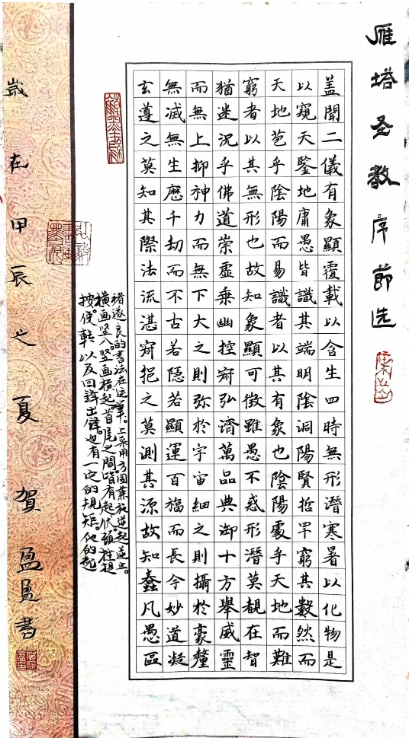 雁塔圣教序節选
盖聞二儀有象顯覆載以含生四時無形潛寒暑以化物是
以窺天鑒地庸愚皆識其端明陰洞陽賢哲罕窮其數然而
天地苞乎陰陽而易識者以其有象也陰陽處乎天地而難
窮者以其無形也故知象顯可徵雖愚不惑形潛莫覩在智
猶迷況乎佛道崇虛乗幽控寂弘濟萬品典御十方舉威靈
而無上抑神力而無下大之則弥於宇宙細之則攝於豪釐
無滅無生歷千劫而不古若隱若顯運百福而長今妙道凝
玄遵之莫知其際法流湛寂挹之莫測其源故知蠢凡愚區
褚遂良的書法在运筆上采用方圆兼施,逆起逆止。
横画竖入竖画横起首尾之間皆有起伏顿挫提
按使轉以及回鋒出鋒也有一定的规矩。他的
岁在甲辰之夏賀盈盈書